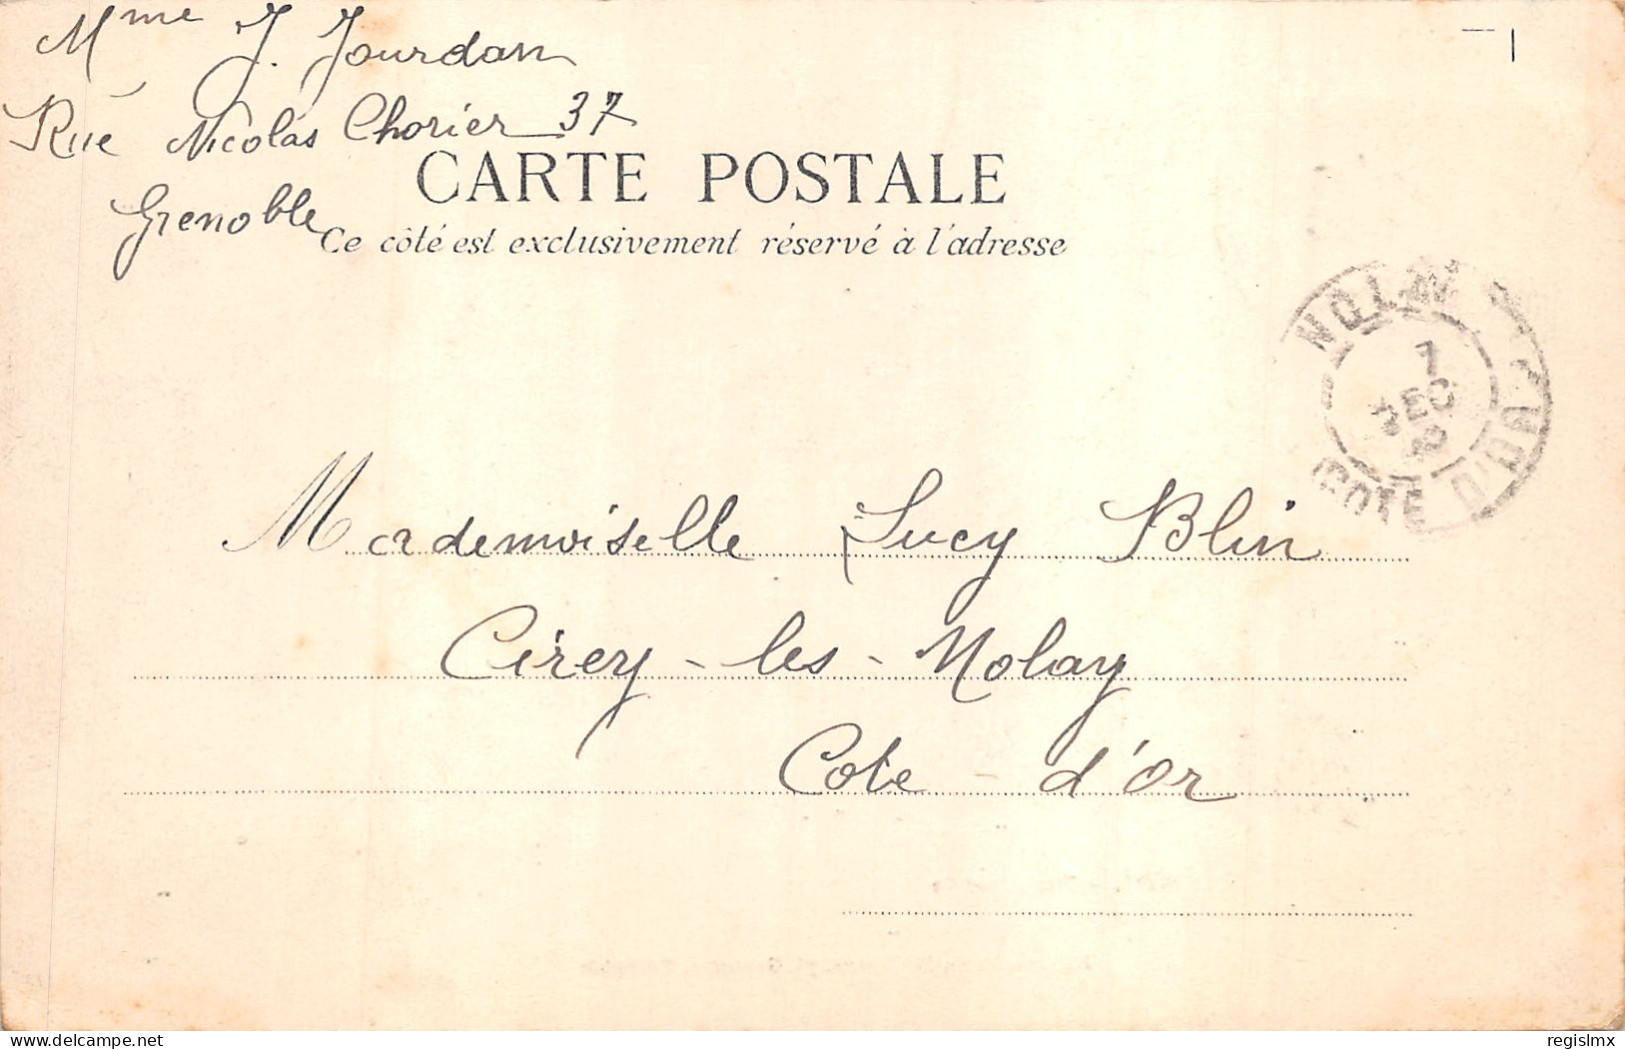 Mme J. Jourdan
Rue Nicolas Chorier 37
Grenoble
CARTE POSTALE
Ce côté est exclusivement réservé à l'adresse
7
DEC
COTE D'OR
Mademoiselle Lucy Blin
Cirey-les-Nolay
Cote d'or
delcampe.net
regislmx